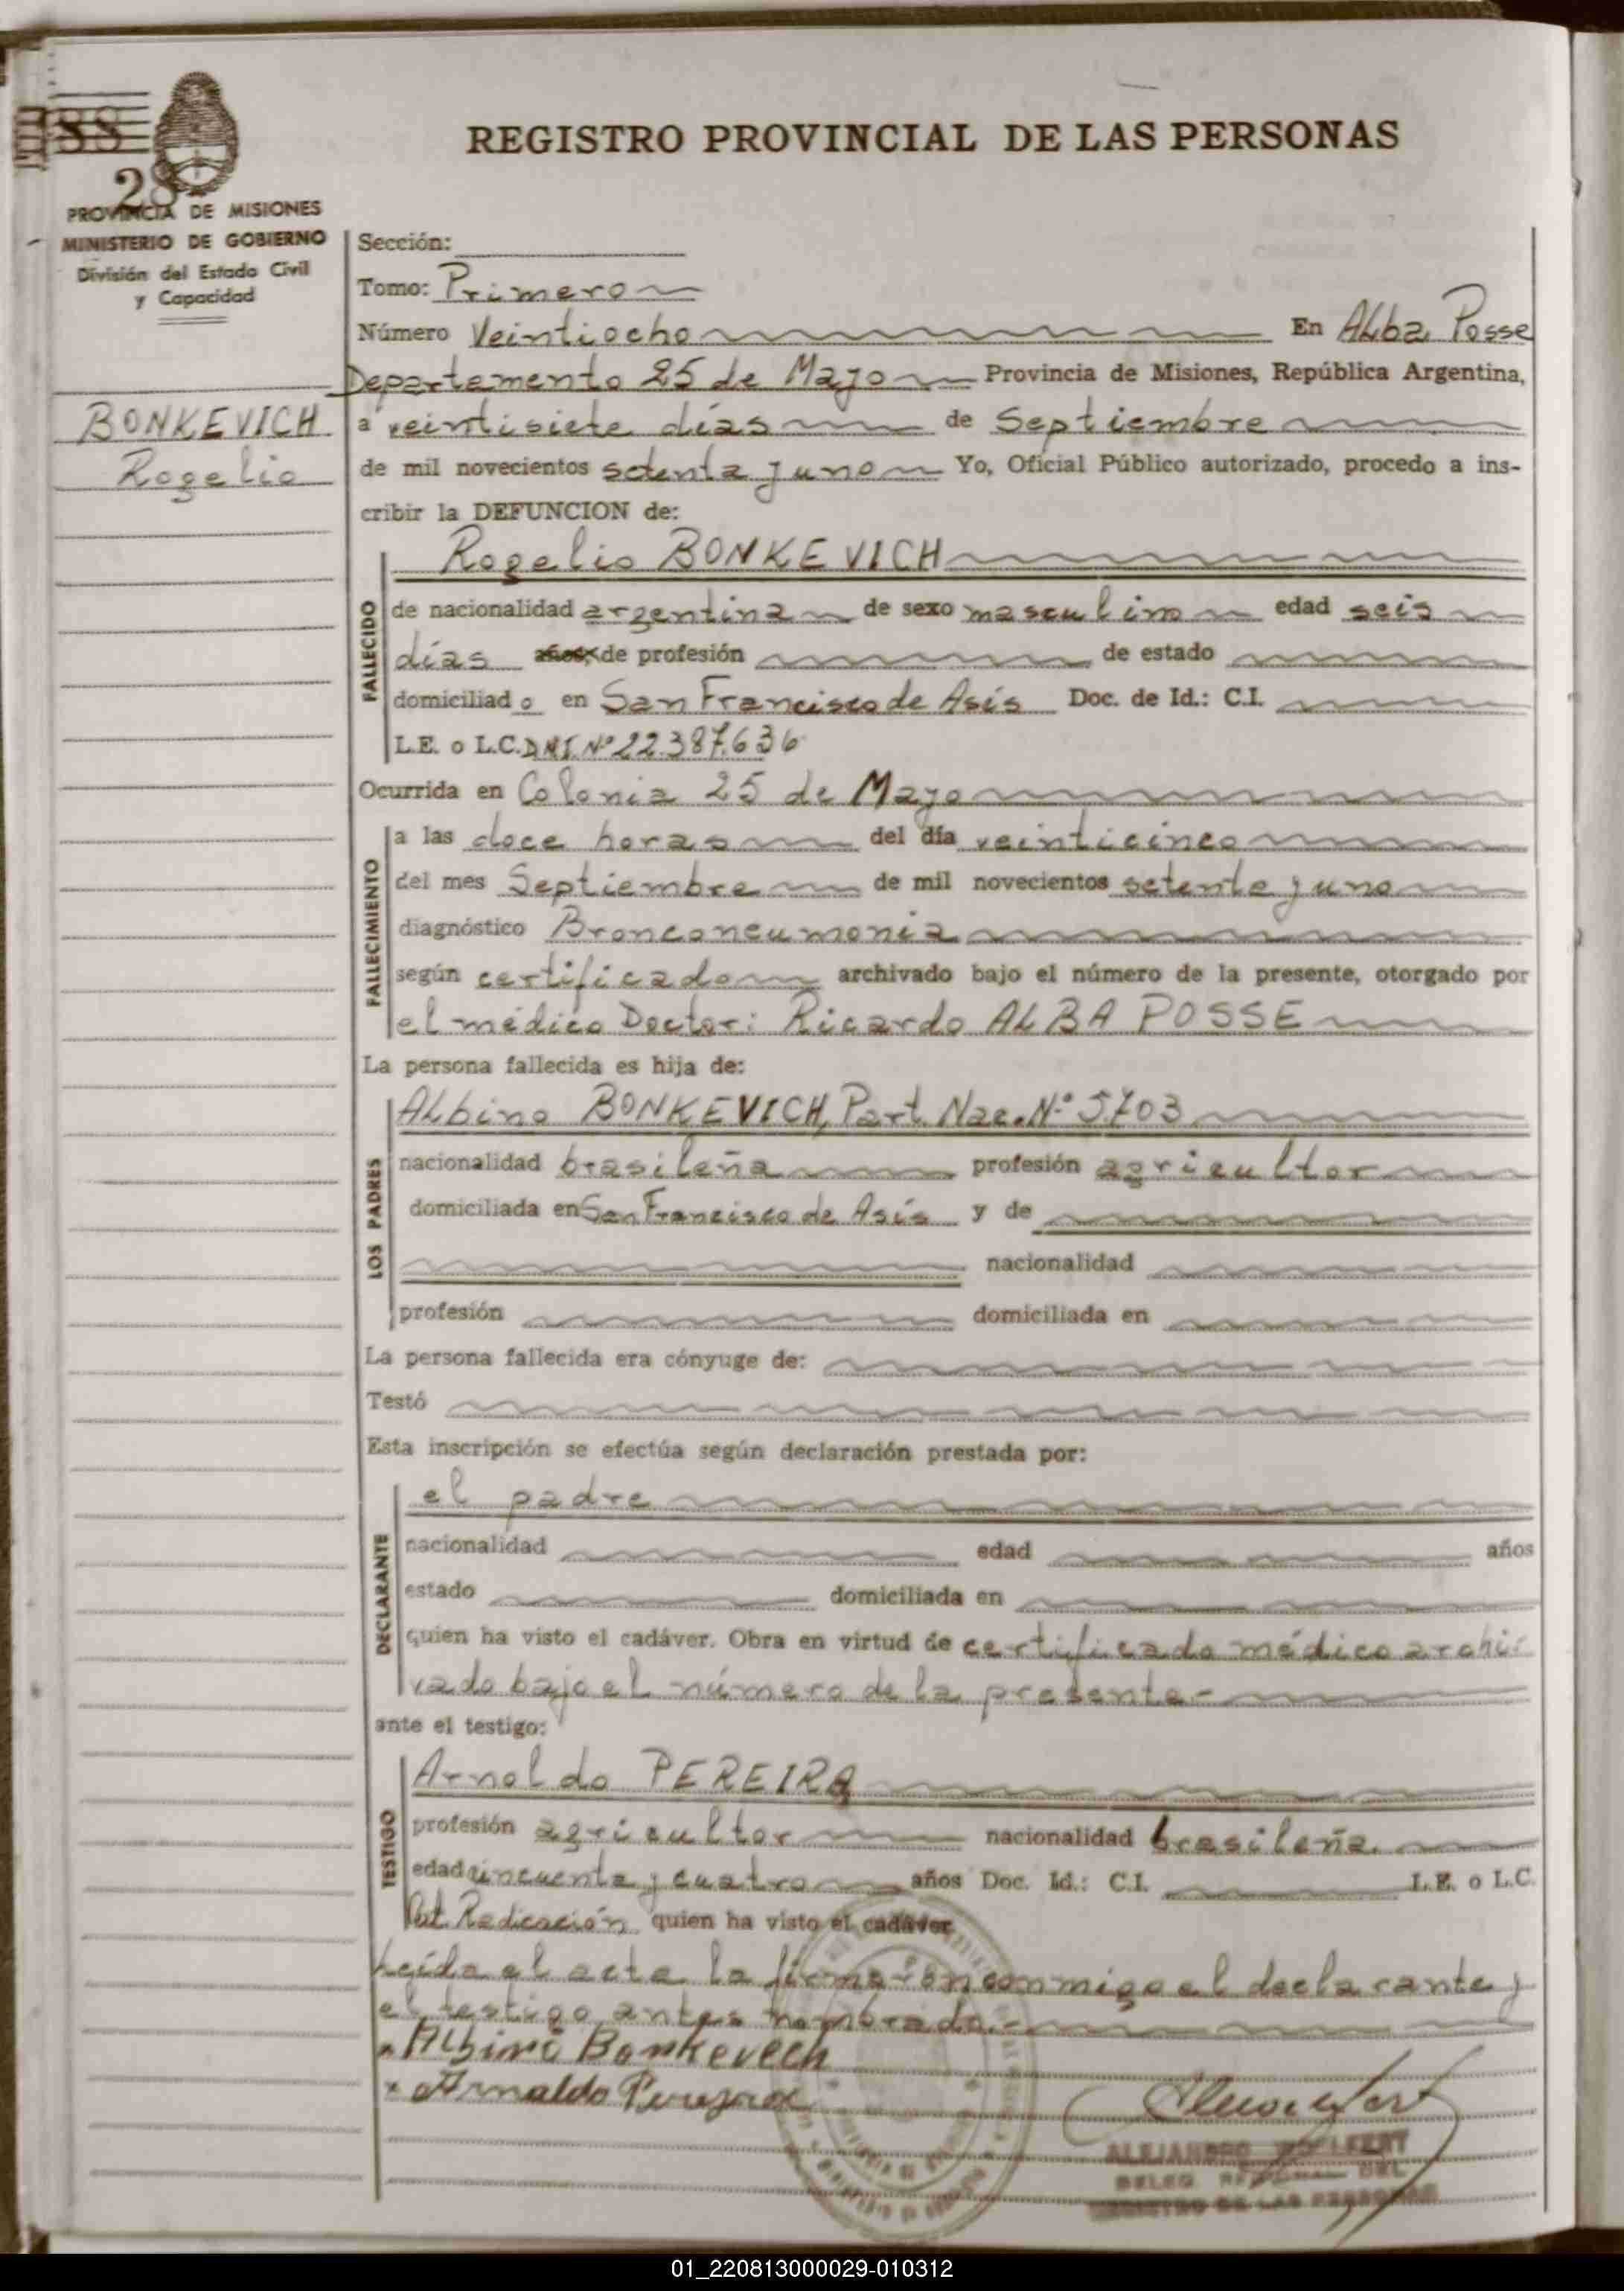 188
28
REGISTRO PROVINCIAL DE LAS PERSONAS
PROVINCIA DE MISIONES
MINISTERIO DE GOBIERNO
División del Estado Civil
y Capacidad
BONKEVICH
Rogelio
Sección:
Tomo: Primero
Número Veintiocho En Alba Posse
Departamento 25 de Mayo Provincia de Misiones, República Argentina,
a veintisiete días de Septiembre
de mil novecientos setenta y uno Yo, Oficial Público autorizado, procedo a ins-
cribir la DEFUNCION de:
Rogelio BONKEVICH
FALLECIDO
de nacionalidad argentina de sexo masculino edad seis
días años, de profesión de estado
domiciliad o en San Francisco de Asís Doc. de Id.: C.I.
L.E. o L.C. DNI. Nº 22.387.636
Ocurrida en Colonia 25 de Mayo
FALLECIMIENTO
a las doce horas del día veinticinco
del mes Septiembre de mil novecientos setenta y uno
diagnóstico Bronconeumonia
según certificado archivado bajo el número de la presente, otorgado por
el médico Doctor: Ricardo ALBA POSSE
La persona fallecida es hija de:
LOS PADRES
Albino BONKEVICH, Part. Nac. Nº 5.703
nacionalidad brasileña profesión agricultor
domiciliada en San Francisco de Asís y de
nacionalidad
profesión domiciliada en
La persona fallecida era cónyuge de:
Testó
Esta inscripción se efectúa según declaración prestada por:
DECLARANTE
el padre
nacionalidad edad años
estado domiciliada en
quien ha visto el cadáver. Obra en virtud de certificado médico archi-
vado bajo el número de la presente.-
ante el testigo:
TESTIGO
Arnoldo PEREIRA
profesión agricultor nacionalidad brasileña
edad cincuenta y cuatro años Doc. Id.: C.I. L.E. o L.C.
Radicación quien ha visto el cadáver
Leída el acta la firmaron conmigo el declarante y
el testigo antes nombrado.-
Albino Bonkevech
x Arnaldo Pereyra
ALEJANDRO WOELFERT
REGISTRO DE LAS PERSONAS
01_220813000029-010312